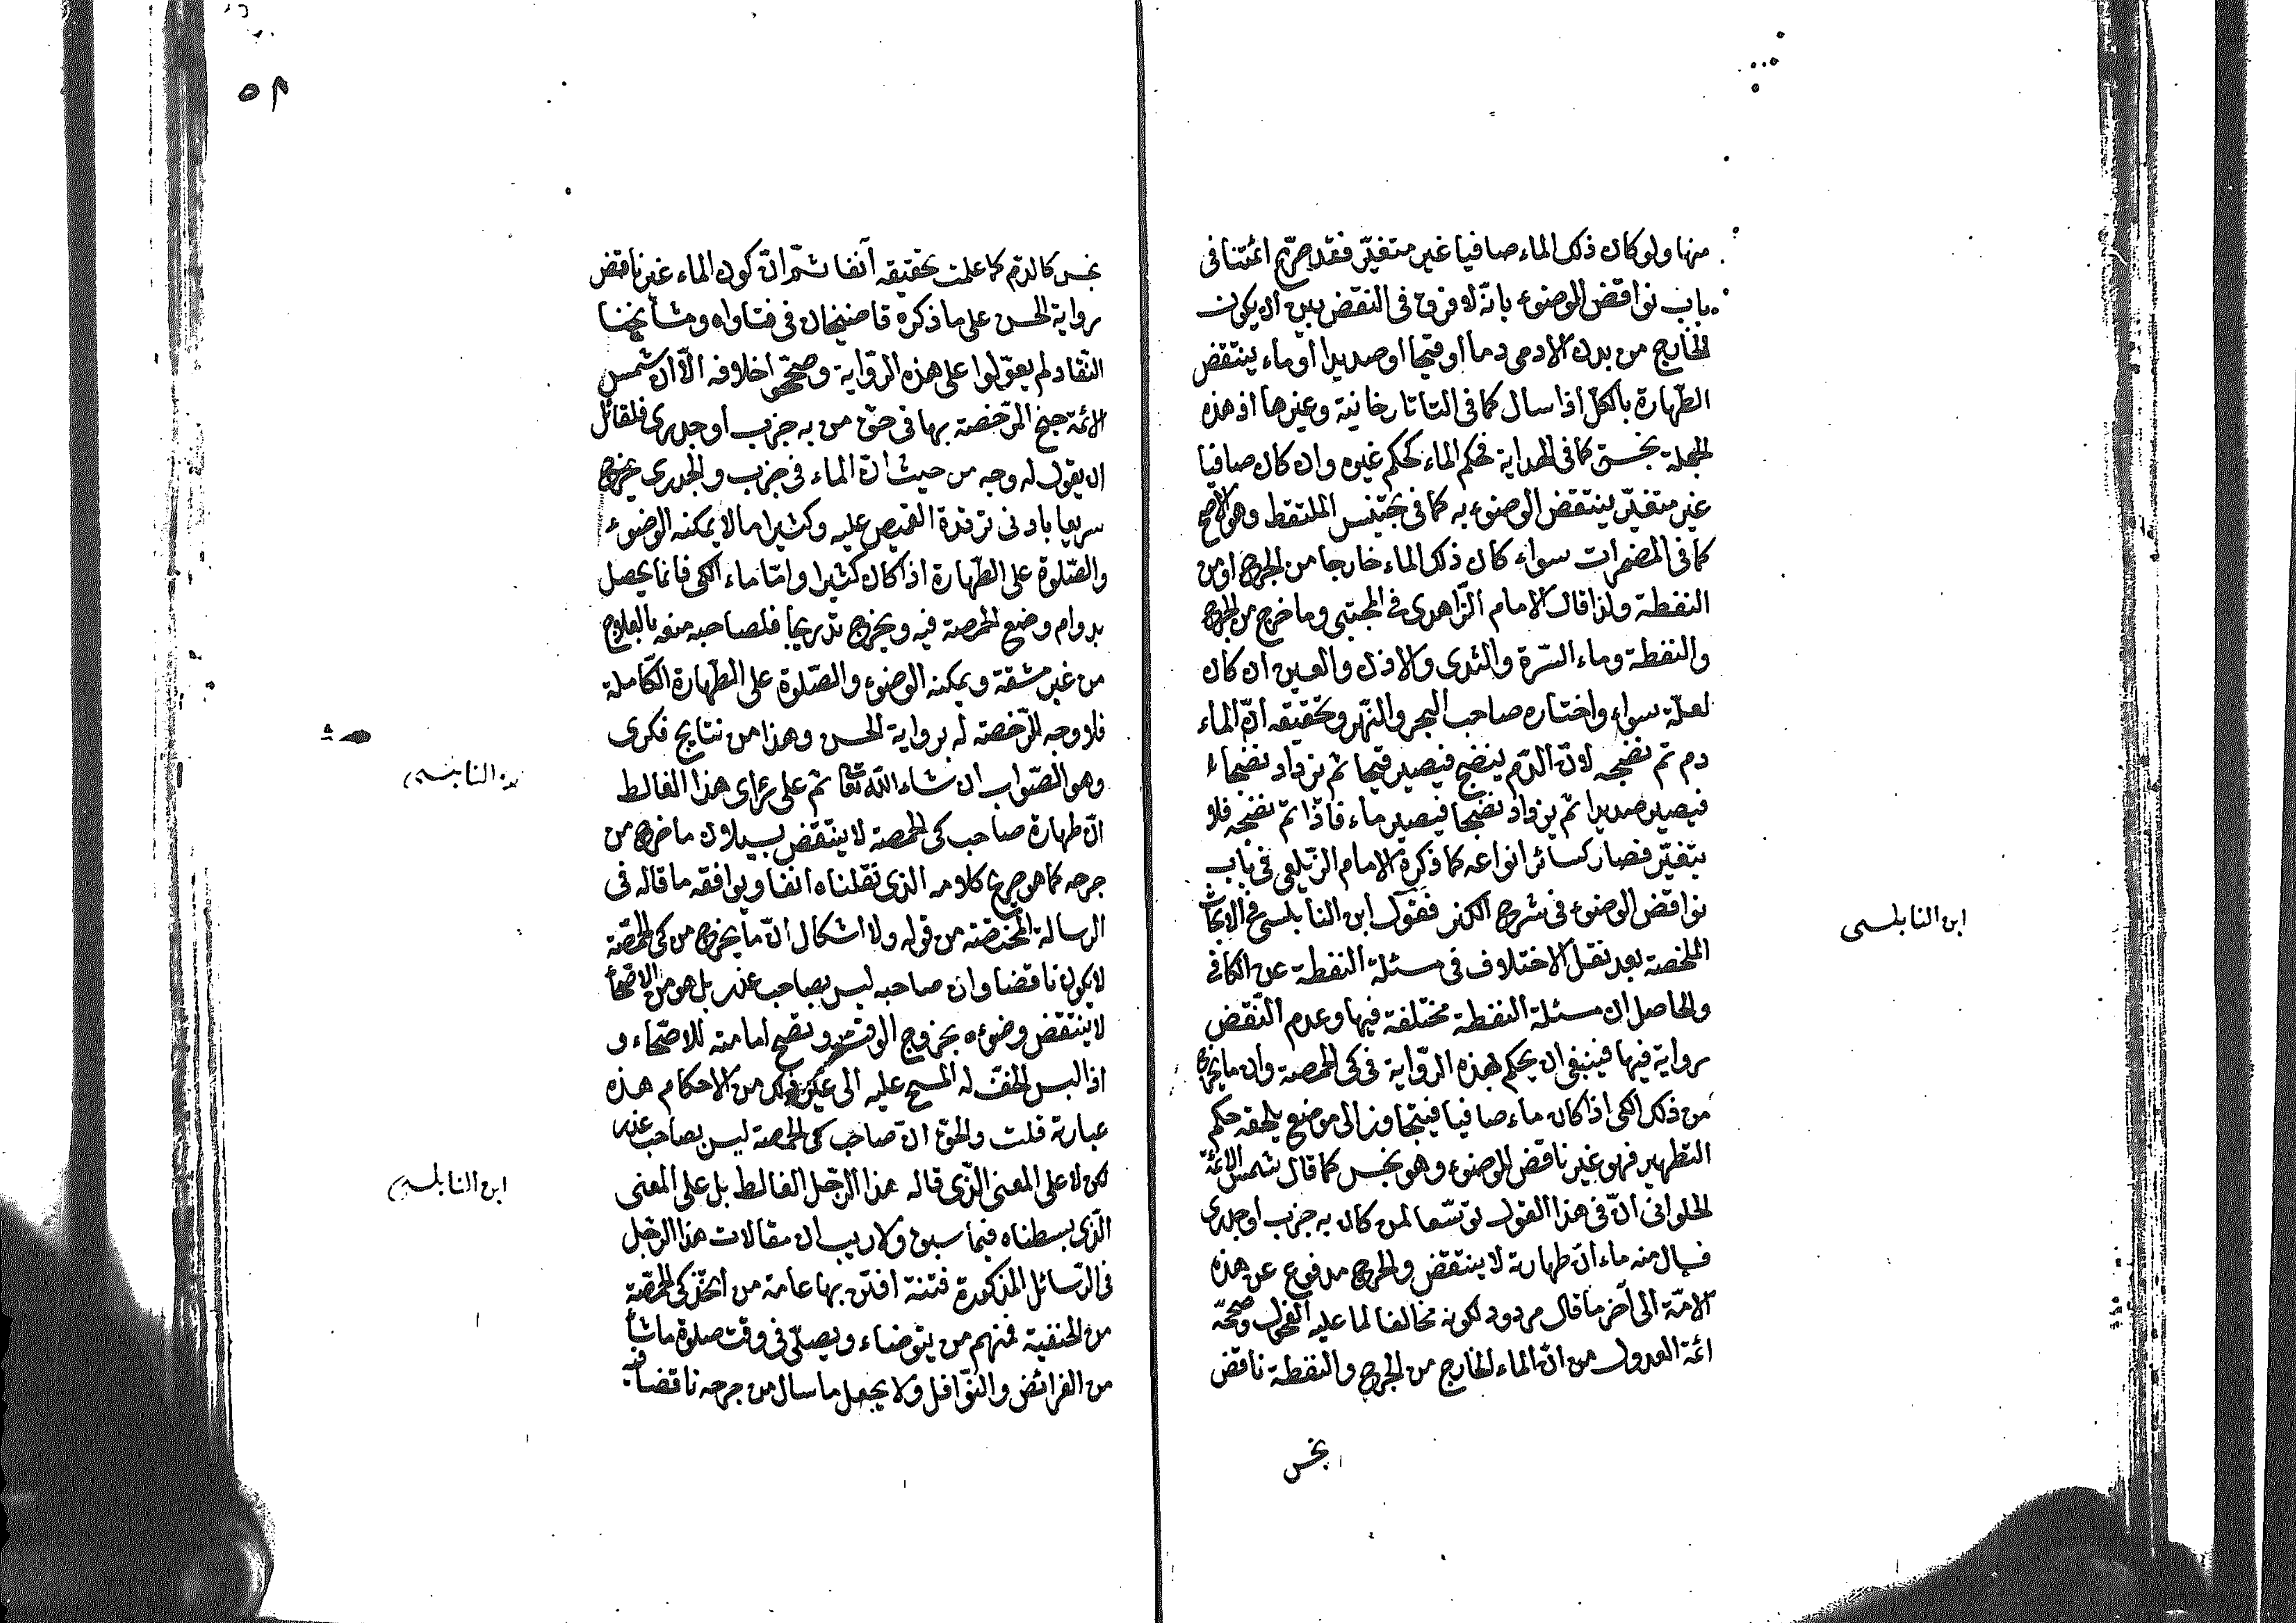 منها ولو كان ذلك الماء صافيا غير متغيّر فقد صرّح ائمّتنا فى
باب نواقض الوضوء بانّه لا فرق فى النقض بين ان يكون
الخارج من بدن الادمى دما او قيحا او صديدا او ماء ينتقض
الطّهارة بالكلّ اذا سال كما فى التاتارخانية وغيرها اذ هذه
الجملة نجسة كما فى الهداية فحكم الماء كحكم غيره وان كان صافيا
غير متغيّر ينتقض الوضوء به كما فى تجنيس الملتقط وهو الاصح
كما فى المضمرات سواء كان ذلك الماء خارجا من الجرح او من
النفطة ولذا قال الامام الزّاهدى فى المجتبى وما خرج من الجرح
والنفطة وماء السّرة والثدى والاذن والعين ان كان
لعلّة سواء واختاره صاحب البحر والنّهر وتحقيقه انّ الماء
دم تم نضجه لانّ الدّم ينضج فيصير قيحا ثم يزداد نضجا
فيصير صديدا ثم يزداد نضجا فيصير ماء فاذا تم نضجه فلا
يتغيّر فصار كسائر انواعه كما ذكره الامام الزّيلعى فى باب
نواقض الوضوء فى شرح الكنز فقول ابن النابلسى فى الابحاث
ابن النابلسى
الملخصة بعد نقل الاختلاف فى مسئلة النفطة عن الكافى
والحاصل ان مسئلة النفطة مختلفة فيها وعدم النّقض
رواية فيها فينبغى ان يحكم بهذه الرّواية فى كى الحمصة وان ما يخرج
من ذلك الكى اذا كان ماء صافيا فيتجاوز الى موضع يلحقه حكم
التطهير فهو غير ناقض للوضوء وهو نجس كما قال شمس الائمّة
الحلوانى انّ فى هذا القول توسّعا لمن كان به جرب او جدرى
فسال منه ماء انّ طهارته لا ينتقض والحرج مدفوع عن هذه
الامّة الى آخر ما قال مردود لكونه مخالفا لما عليه الفحول وصحّحه
ائمة العدول من انّ الماء الخارج من الجرح والنفطة ناقض
نجس
٥٢
نجس كالدّم كما علمت تحقيقه آنفا ثم انّ كون الماء غير ناقض
رواية الحسن على ما ذكره قاضيخان فى فتاواه ومشايخنا
النّقاد لم يعوّلوا على هذه الرّواية وصحّحوا خلافه الّا ان شمس
الائمة جنح الرّخصة بها فى حقّ من به جرب او جدرى فلقائل
ان يقول له وجه من حيث انّ الماء فى جرب والجدرى يخرج
سريعا بادنى القميص عليه وكثيرا ما لا يمكنه الوضوء
والصّلوة على الطّهارة اذا كان كثيرا وامّا ماء الكى فانما يحصل
بدوام وضع الحمصة فيه ويخرج تدريجا فلصاحبه منعه بالعلاج
من غير مشقة ويمكنه الوضوء والصّلوة على الطّهارة الكاملة
فلا وجه للرّخصة له برواية الحسن وهذا من نتايج فكرى
وهو الصّواب ان شاء الله تعا ثم على رأى هذا الغالط
ابن النابلسى
انّ طهارة صاحب كى الحمصة لا ينتقض بسيلان ما خرج من
جرحه كما هو صريح كلامه الذى نقلناه انفا ويوافقه ما قاله فى
الرسالة المختصّة من قوله ولا اشكال انّ ما يخرج من كى الحمّصة
لا يكون ناقضا وان صاحبه ليس بصاحب عذر بل هو من الاصحّاء
لا ينتقض وضوءه بخروج الوقت وتصح امامته للاصحّاء و
اذا لبس الخفّ له المسح عليه الى غير ذلك من الاحكام هذه
عبارته قلت والحقّ انّ صاحب كى الحمصة ليس بصاحب عذر
لكن لا على المعنى الذّى قاله هذا الرّجل الغالط بل على المعنى
ابن النابلسى
الّذى بسطناه فيما سبق ولا ريب ان مقالات هذا الرّجل
فى الرّسائل المذكورة فتنة افتتن بها عامة من اتّخذ كى الحمّصة
من الحنفية فمنهم من يتوضاء ويصلّى فى وقت صلوة ما شاء
من الفرائض والنّوافل ولا يجعل ما سال من جرحه ناقضا فيه